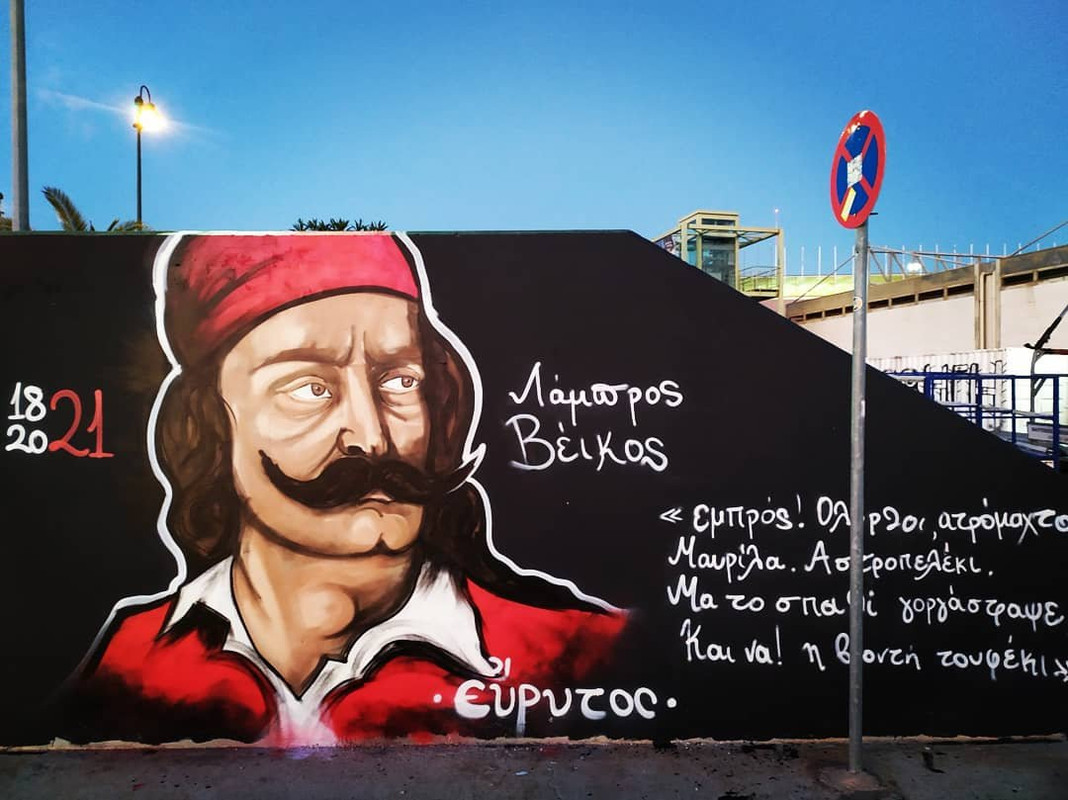 18
20 21
Λάμπρος
Βέικος
« εμπρός! Ολόρθοι, ατρόμαχτο
Μαυρίλα. Αστροπελέκι.
Μα το σπαθί γοργάστραψε,
Και να! η βροντή τουφέκι»
οι
· ευρυτος ·